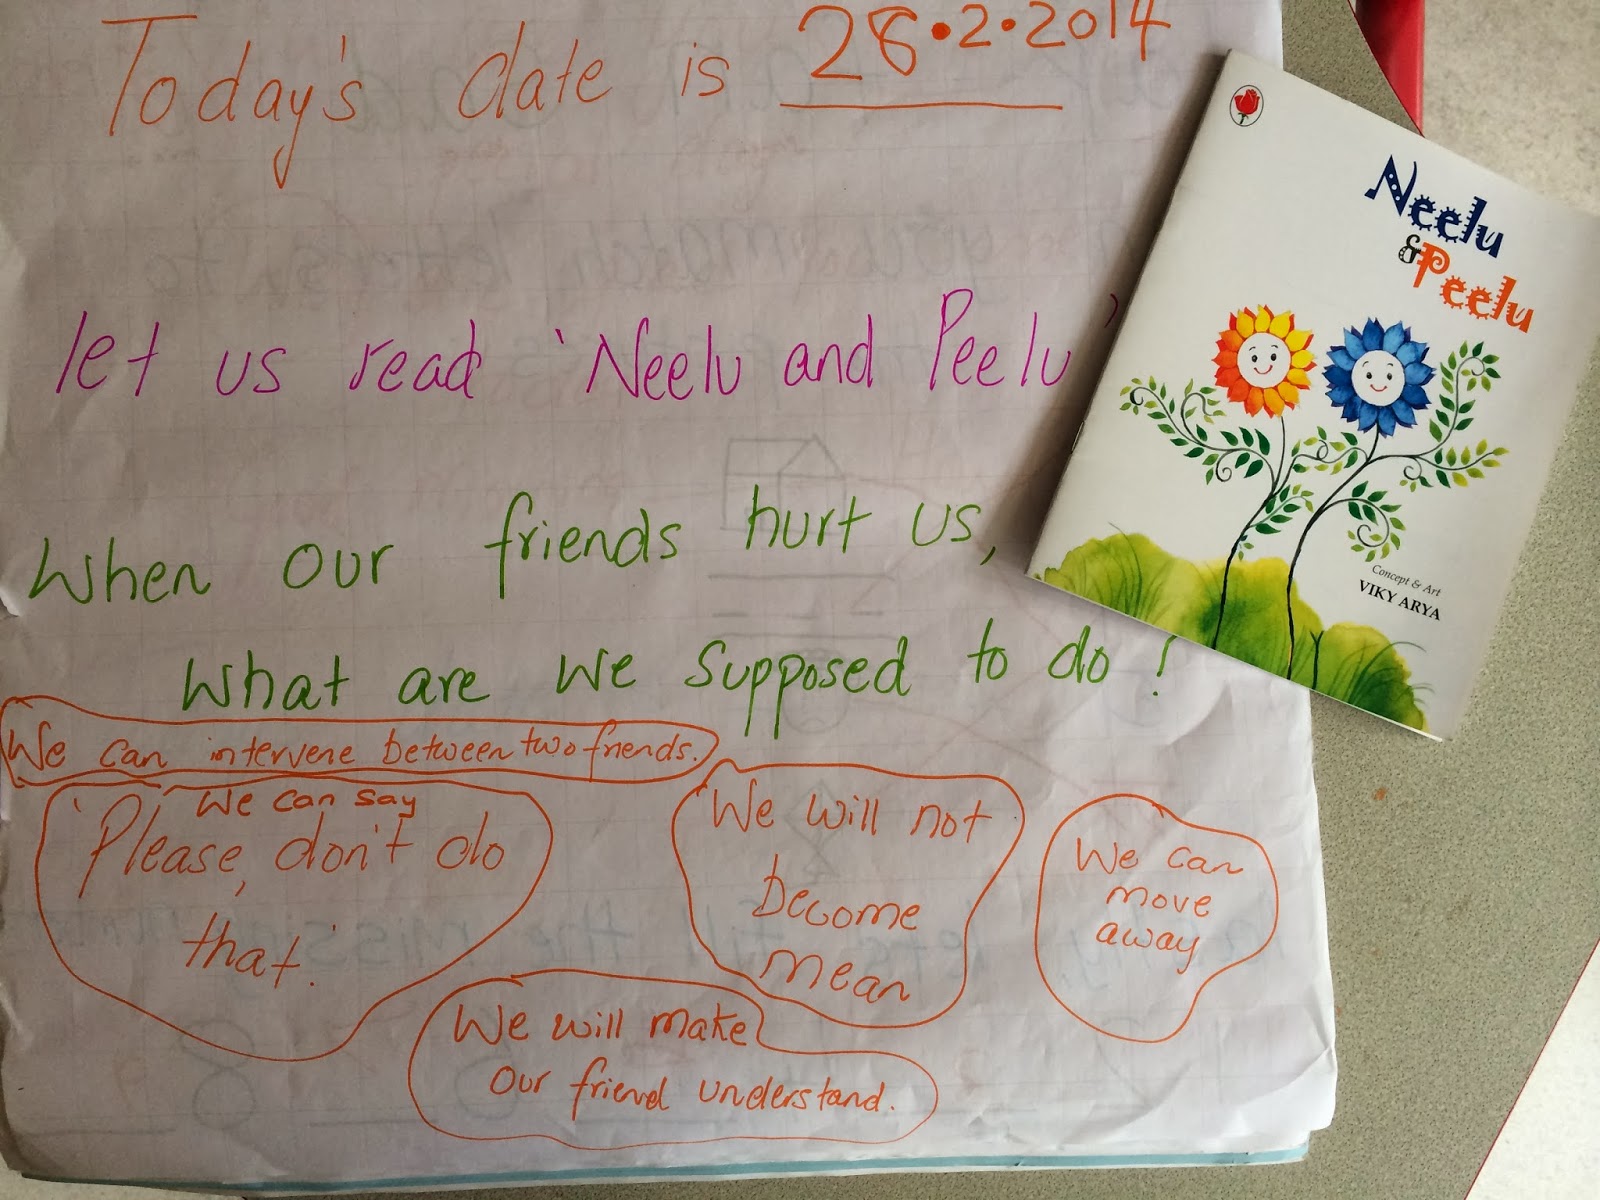 Today's date is 28.2.2014
let us read 'Neelu and Peelu'
When our friends hurt us,
what are we supposed to do?
We can intervene between two friends.
We can say
'Please, don't do
that.'
We will not
become
mean
We can
move
away
We will make
our friend understand.
Neelu
& Peelu
Concept & Art
VIKY ARYA